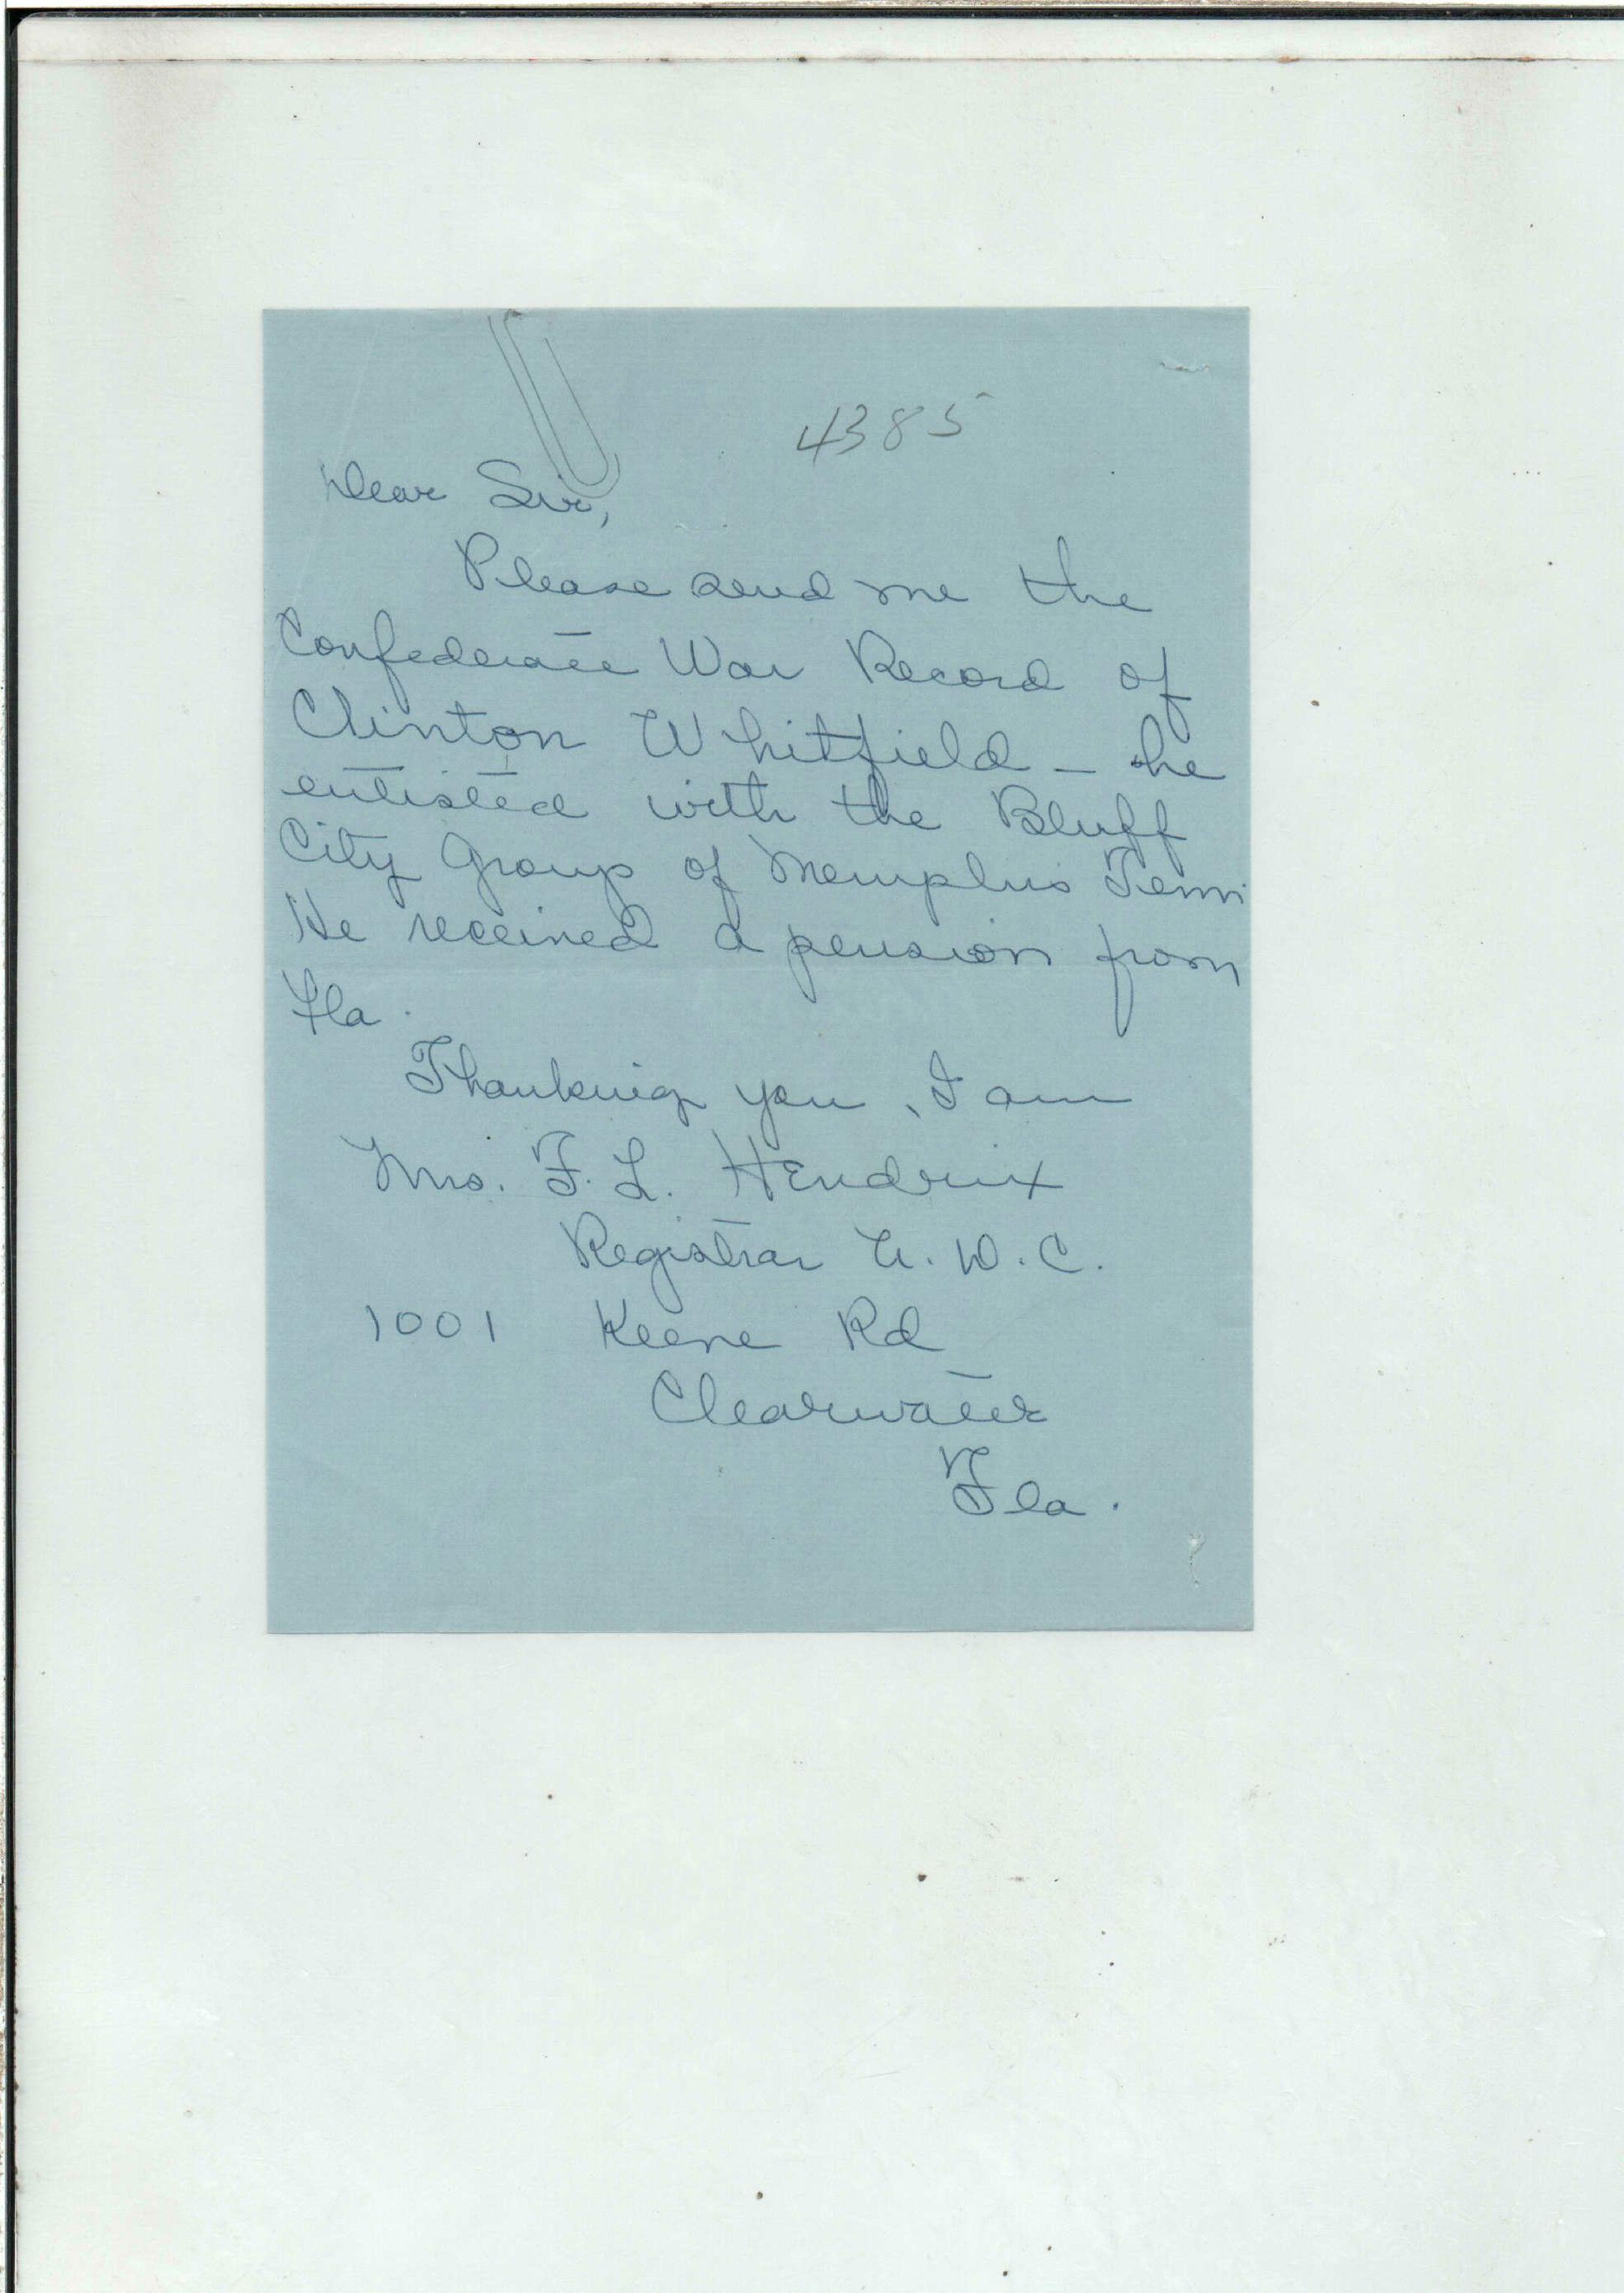 4385
Dear Sir,
Please send me the
Confederate War Record of
Clinton Whitfield - he
enlisted with the Bluff
City Group of Memphis Tenn.
He received a pension from
Fla.
Thanking you, I am
Mrs. F. L. Hendrix
Registrar U. D. C.
1001 Keene Rd
Clearwater
Fla.